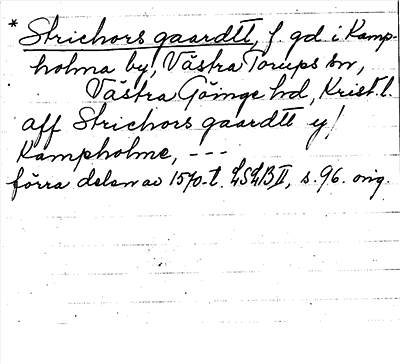 * Strichors gaardtt, f. gd. i Kamp-
holma by, Västra Torups sn,
Västra Göinge hd, Krist. l.
aff Strichors gaardtt y/
Kampholme, ---
förra delen av 1570-t. LSLB II, s. 96. orig.